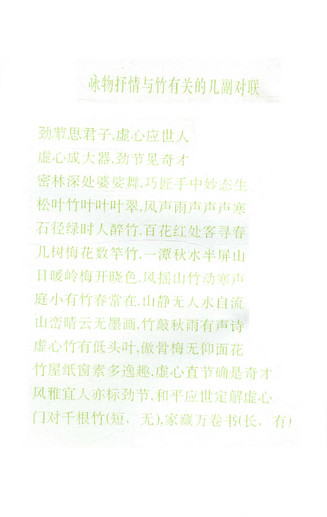 咏物抒情与竹有关的几副对联
劲节思君子,虚心应世人
虚心成大器,劲节见奇才
密林深处婆娑舞,巧匠手中妙态生
松叶竹叶叶叶翠,风声雨声声声寒
石径绿时人醉竹,百花红处客寻春
几树梅花数竿竹,一潭秋水半屏山
日暖岭梅开晓色,风摇山竹动寒声
庭小有竹春常在,山静无人水自流
山峦晴云无墨画,竹敲秋雨有声诗
虚心竹有低头叶,傲骨梅无仰面花
竹屋纸窗素多逸趣,虚心直节确是奇才
风雅宜人亦标劲节,和平应世定解虚心
门对千根竹(短，无),家藏万卷书(长，有)